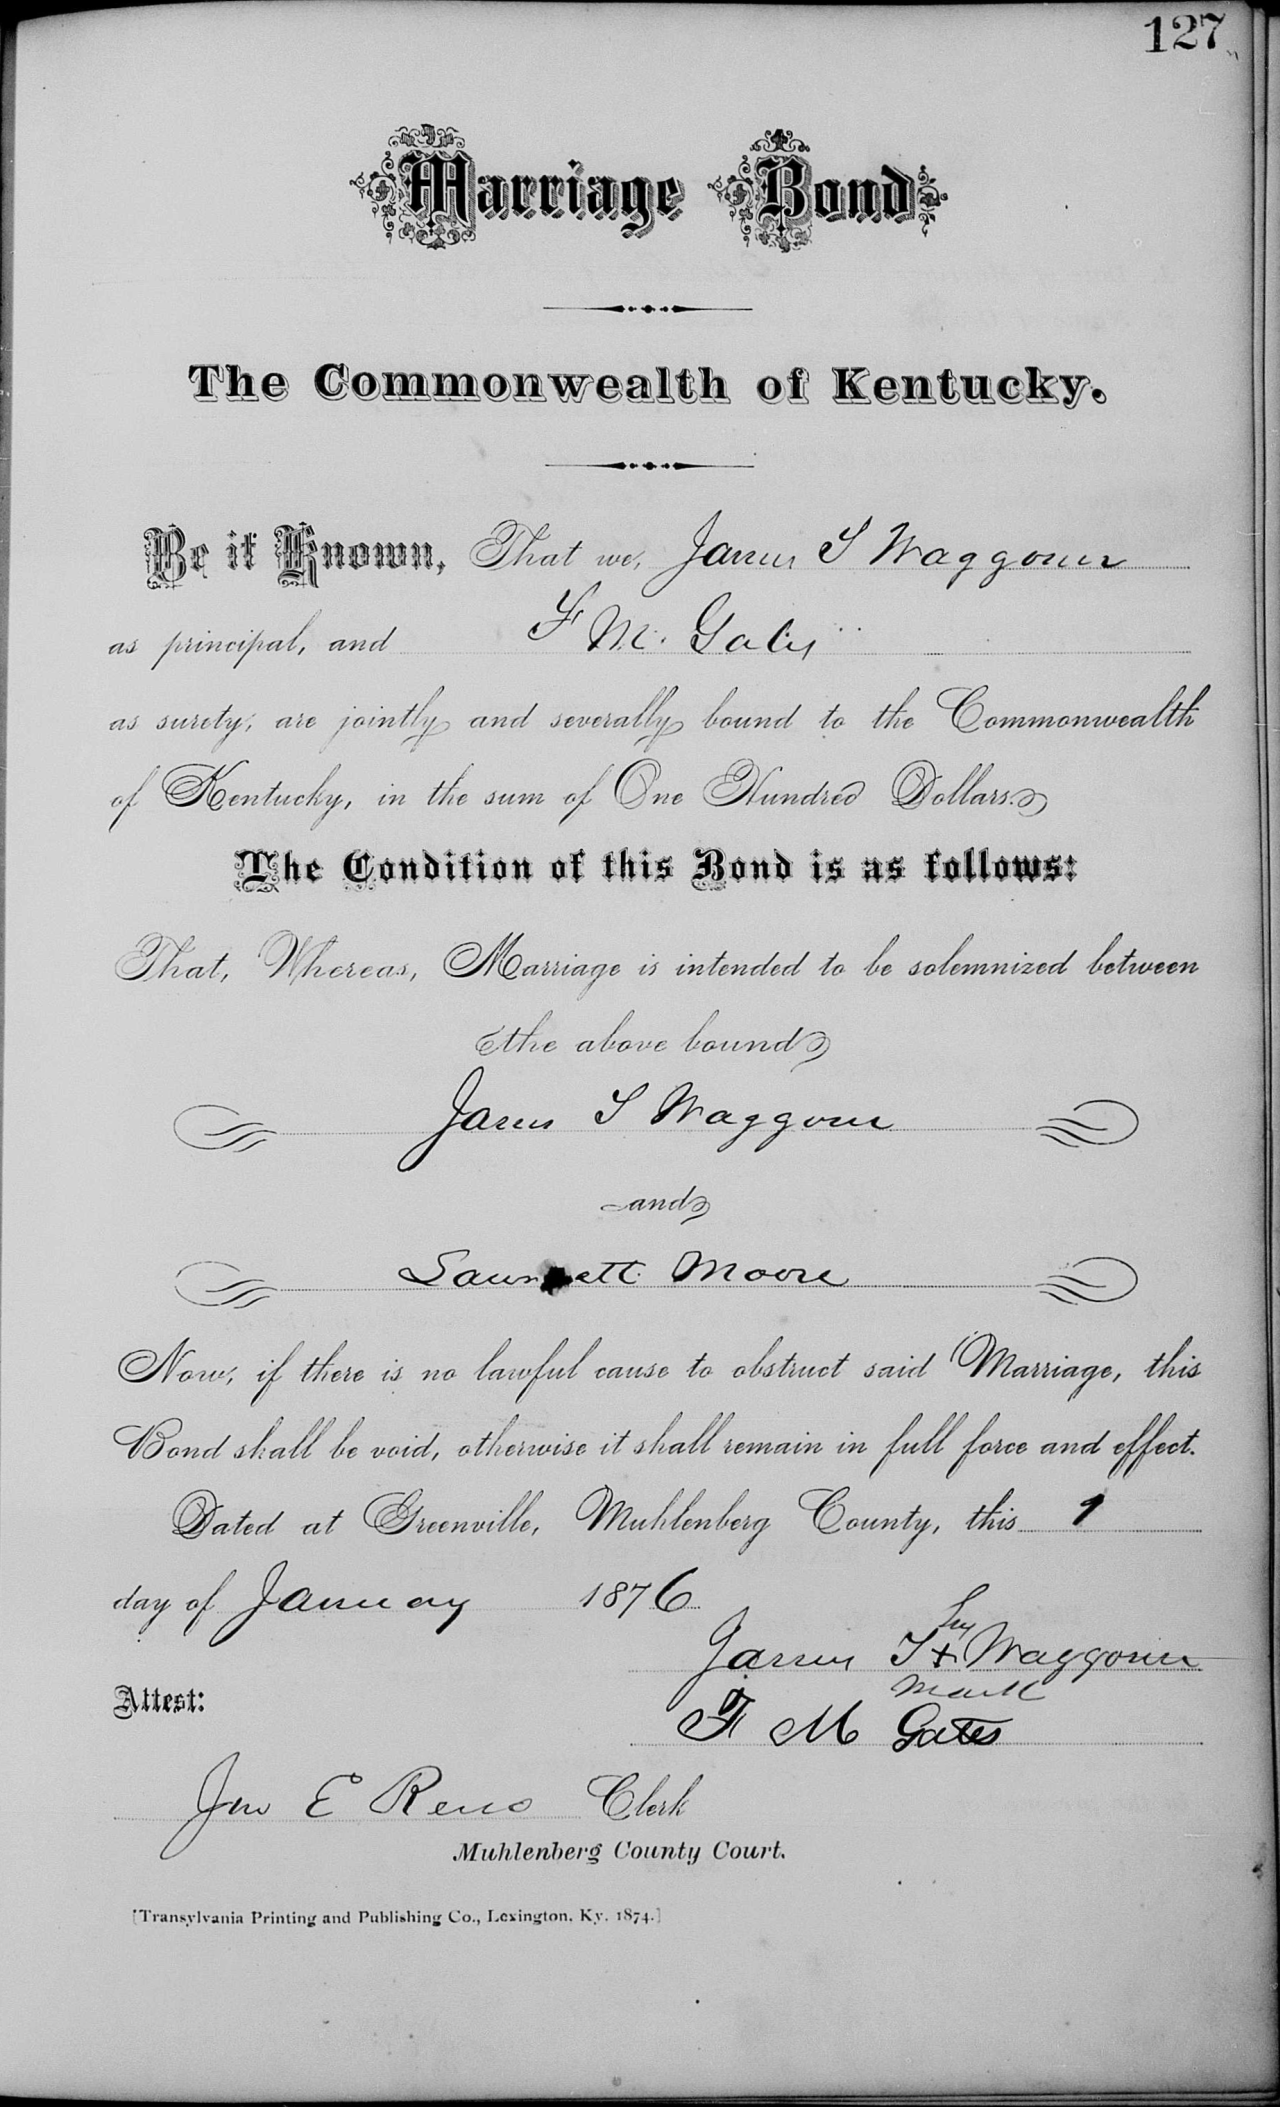 127
Marriage Bond
The Commonwealth of Kentucky.
Be it Known, That we, James S Waggoner
as principal, and F M. Gates
as surety, are jointly and severally bound to the Commonwealth
of Kentucky, in the sum of One Hundred Dollars.
The Condition of this Bond is as follows:
That, Whereas, Marriage is intended to be solemnized between
the above bound
James S Waggoner
and
Moore
Now, if there is no lawful cause to obstruct said Marriage, this
Bond shall be void, otherwise it shall remain in full force and effect.
Dated at Greenville, Muhlenberg County, this 1
day of January 1876
his
James S x Waggoner
mark
Attest:
F M Gates
Jno E Reno Clerk
Muhlenberg County Court.
[Transylvania Printing and Publishing Co., Lexington, Ky. 1874.]